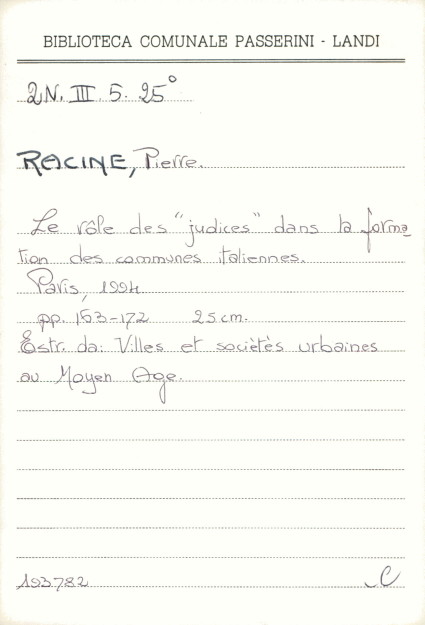 BIBLIOTECA COMUNALE PASSERINI - LANDI
2N. III. 5. 25°
RACINE, Pierre.
Le rôle des "judices" dans la forma
tion des communes italiennes.
Paris, 1994
pp. 153-172 25 cm.
Estr. da: Villes et sociètès urbaines
au Moyen Age.
193782
C